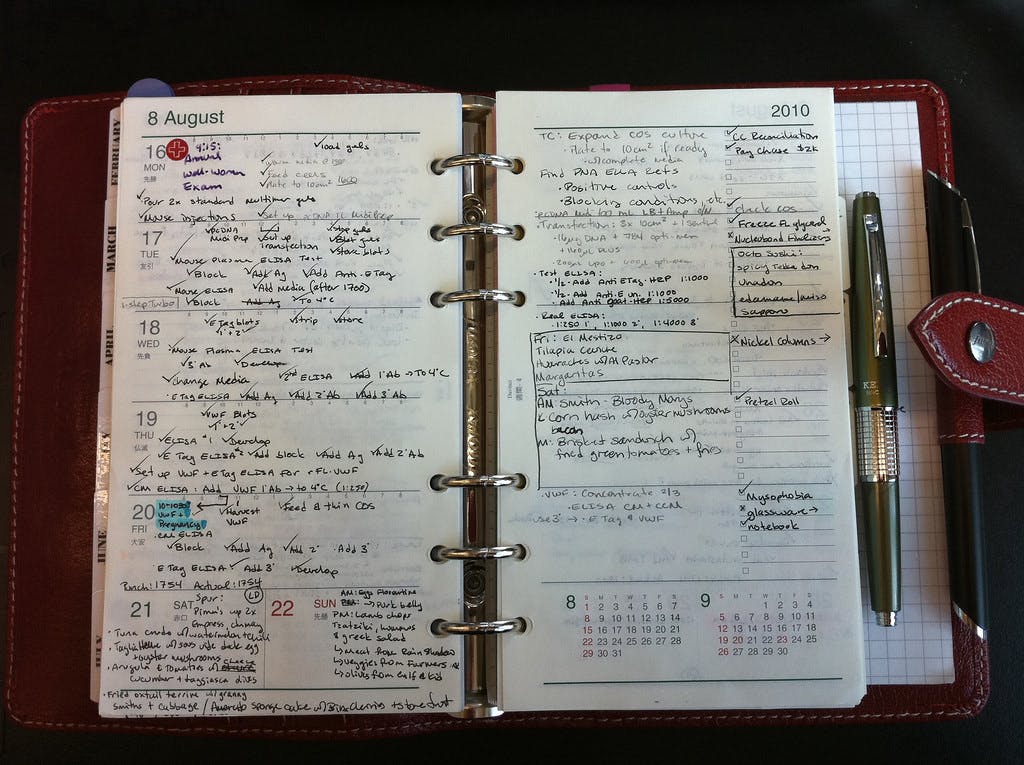 8 August
16
MON
先勝
9:15:
Annual
Well-Woman
Exam
load gels
warm media @ 1530
feed cells
Plate to 10cm² 1600
Pour 2x standard multimer gels
Mouse injections
Set up pcDNA TC Midi Prep
17
TUE
友引
pcDNA
Midi Prep
Set up
Transfection
Stop gels
Blot gels
store blots
Mouse Plasma ELISA Test
Block Add Ag Add Anti-E Tag
Mouse ELISA Add Media (after 1700)
1-step Turbo
Block Add Ag To 4°C
18
WED
先負
E Tag blots
1° + 2°
Strip store
Mouse Plasma ELISA Test
3° Ab Develop
Change Media 2nd ELISA Add 1°Ab → To 4°C
E Tag ELISA Add Ag Add 2°Ab Add 3°Ab
19
THU
仏滅
VWF Blots
1° + 2°
ELISA #1 Develop
E Tag ELISA #2 Add Block Add Ag Add 2°Ab
Set up VWF + E Tag ELISA for rFL-VWF
CM ELISA: Add VWF 1°Ab → to 4°C (1:250)
20
FRI
大安
VWF +
Pregnancy
Harvest
VWF
Feed & thin COS
CM ELISA
Block Add Ag Add 2° Add 3°
E Tag ELISA Add 3° Develop
Punch: 1754 Actual: 1754
21
SAT
赤口
LD
Spur:
Pimm's up 2x
Empress, chimay
Tuna crudo w/ watermelon + chili
w/ sous vide duck egg
+ oyster mushrooms
Arugula & tomatoes w/
cucumber + taggiasca olives
Fried oxtail terrine w/ granny
smiths + cabbage / Amaretto sponge cake w/ Bing cherries + stonefruit
22
SUN
先勝
AM: Eggs Florentine
→ Pork belly
PM: Lamb chops
Tzatziki, hummus
& greek salad
↳ meat from Rain Shadow
↳ veggies from Farmers
↳ olives from Calf & Kid
FEBRUARY
MARCH
APRIL
JUNE
2010
TC: Expand COS culture
· Plate to 10cm² if ready
· w/ complete media
Find DNA ELISA Refs
· Positive controls
· Blocking conditions, etc.
· pcDNA Midi 100 mL LB + Amp O/N
· Transfection: 3x 10cm² + 1 control
· 16µg DNA + 784 opti-mem
+ 160µl PLUS
· 200µl Lipo + 600µl opti-mem
· Test ELISA:
· 1/2 - Add Anti E Tag-HRP 1:1000
· 1/2 - Add Anti-E un. 1:1000
· Add Anti goat-HRP 1:5000
· Real ELISA:
· 1:250 1°, 1:1000 2°, 1:4000 3°
Fri: El Mestizo
Tilapia Ceviche
Huaraches w/ Al Pastor
Margaritas
Sat
AM Smith - Bloody Marys
K Corn hash w/ oyster mushrooms
bacon
M: Brisket sandwich w/
fried green tomatoes + fries
· VWF: Concentrate 2/3
· ELISA CM + CCM
use 3 → · E Tag & VWF
CC Reconciliation
Pay Chase $2K
check cos
Freeze FL glycerol
Nucleobond Finalizers
Octo Sushi:
spicy Tekka don
Unadon
edamame/miso
Sapporo
Nickel columns →
Pretzel Roll
Mysophobia
glassware →
notebook
8
S M T W T F S
1 2 3 4 5 6 7
8 9 10 11 12 13 14
15 16 17 18 19 20 21
22 23 24 25 26 27 28
29 30 31
9
S M T W T F S
1 2 3 4
5 6 7 8 9 10 11
12 13 14 15 16 17 18
19 20 21 22 23 24 25
26 27 28 29 30